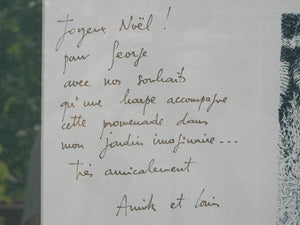 Joyeux Noël !
pour George
avec nos souhaits
qu'une harpe accompagne
cette promenade dans
mon jardin imaginaire...
très amicalement
Annik et Louis